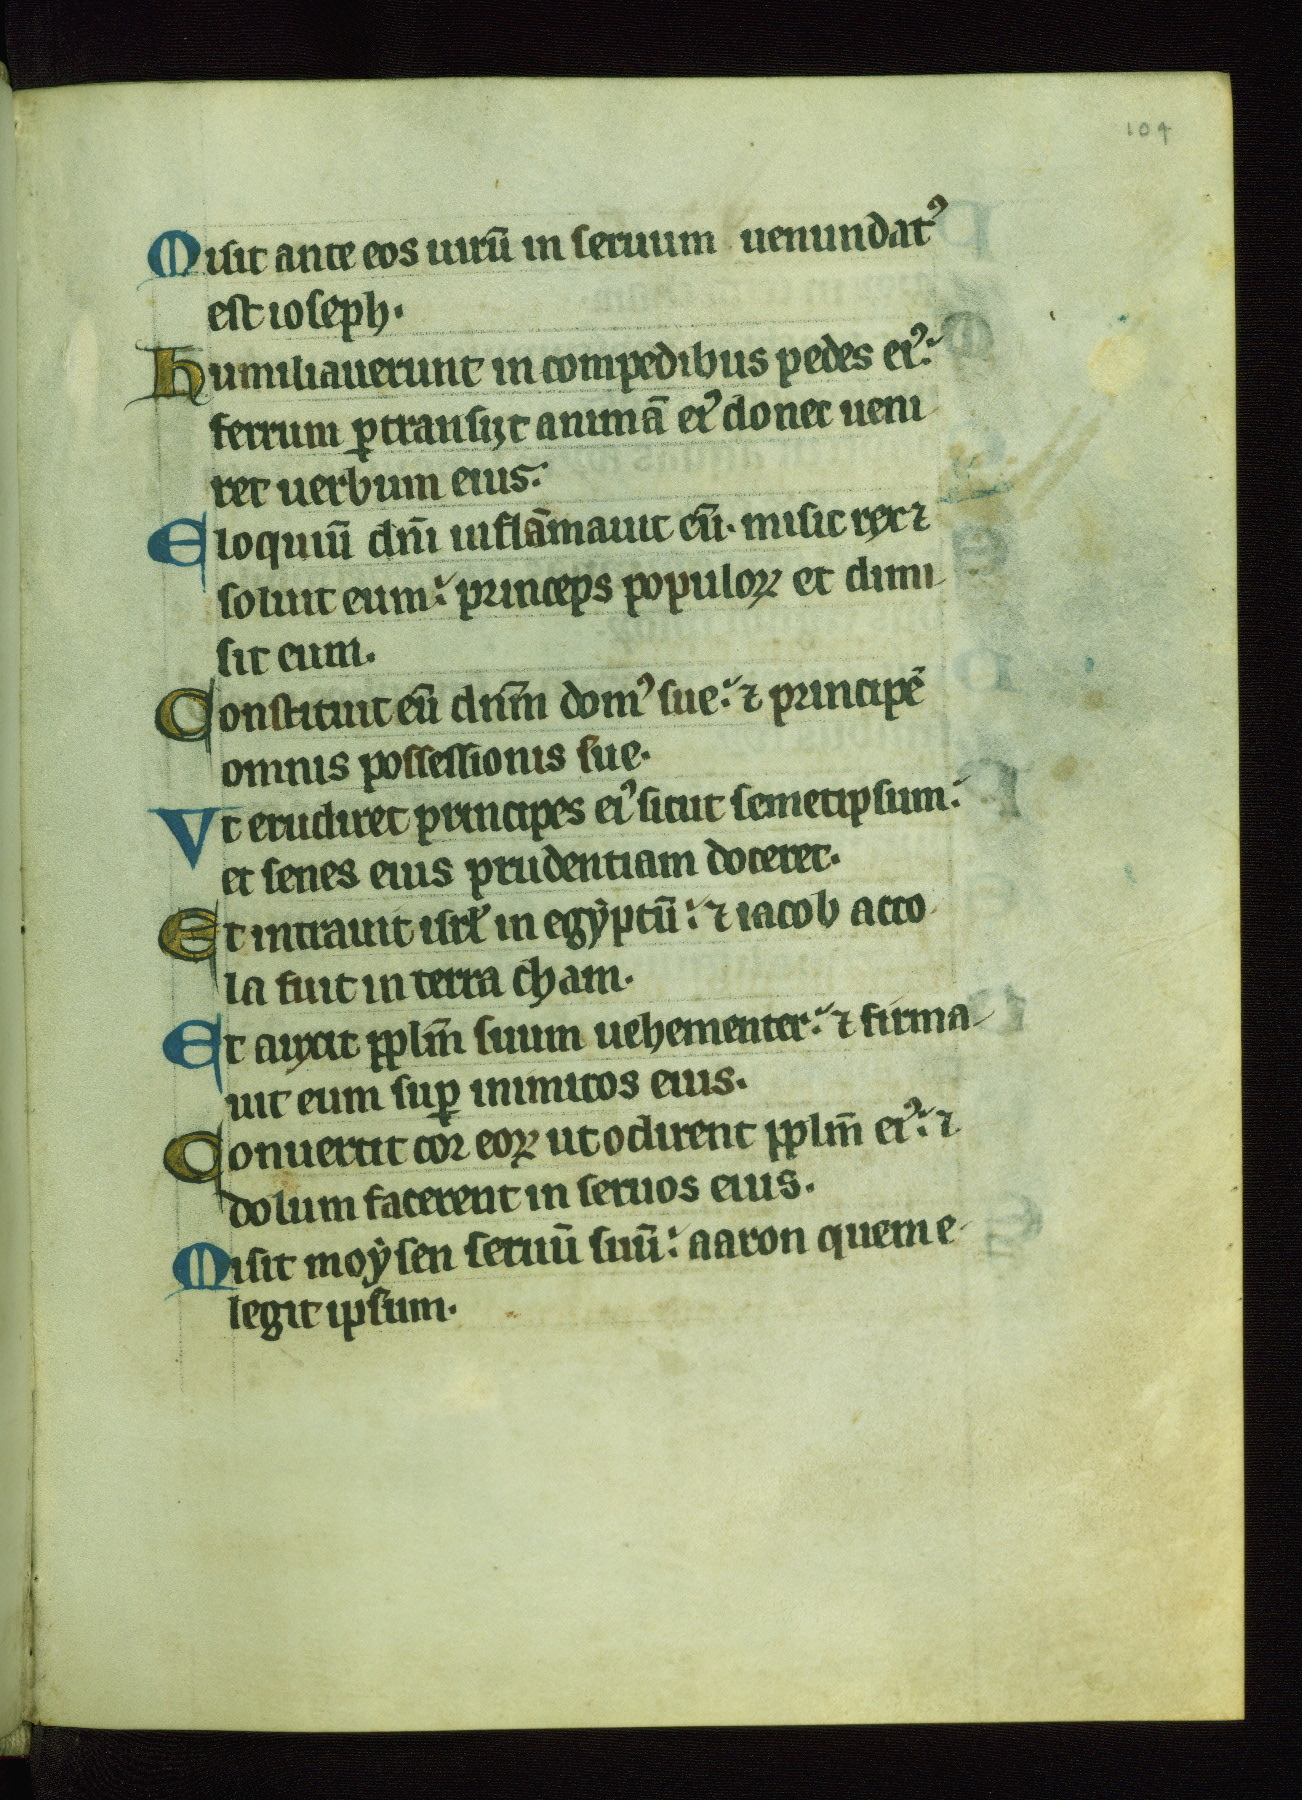 104
Misit ante eos uirū in seruum uenundatꝰ
est ioseph.
Humiliauerunt in compedibus pedes eiꝰ:
ferrum ꝑtransijt animā eiꝰ donec ueni
ret uerbum eius:
Eloquiū dn̄i inflāmauit eū. misit rex ⁊
soluit eum: princeps populoꝝ et dimi
sit eum.
Constituit eū dn̄m domꝰ sue: ⁊ principē
omnis possessionis sue.
Vt erudiret principes eiꝰ sicut semetipsum:
et senes eius prudentiam doceret.
Et intrauit isrl̄ in egẏptū: ⁊ iacob acco
la fuit in terra cham.
Et auxit pplm̄ suum uehementer: ⁊ firma
uit eum suꝑ inimicos eius.
Conuertit cor eoꝝ ut odirent pplm̄ eiꝰ: ⁊
dolum facerent in seruos eius.
Misit moẏsen seruū suū: aaron quem e
legit ipsum.